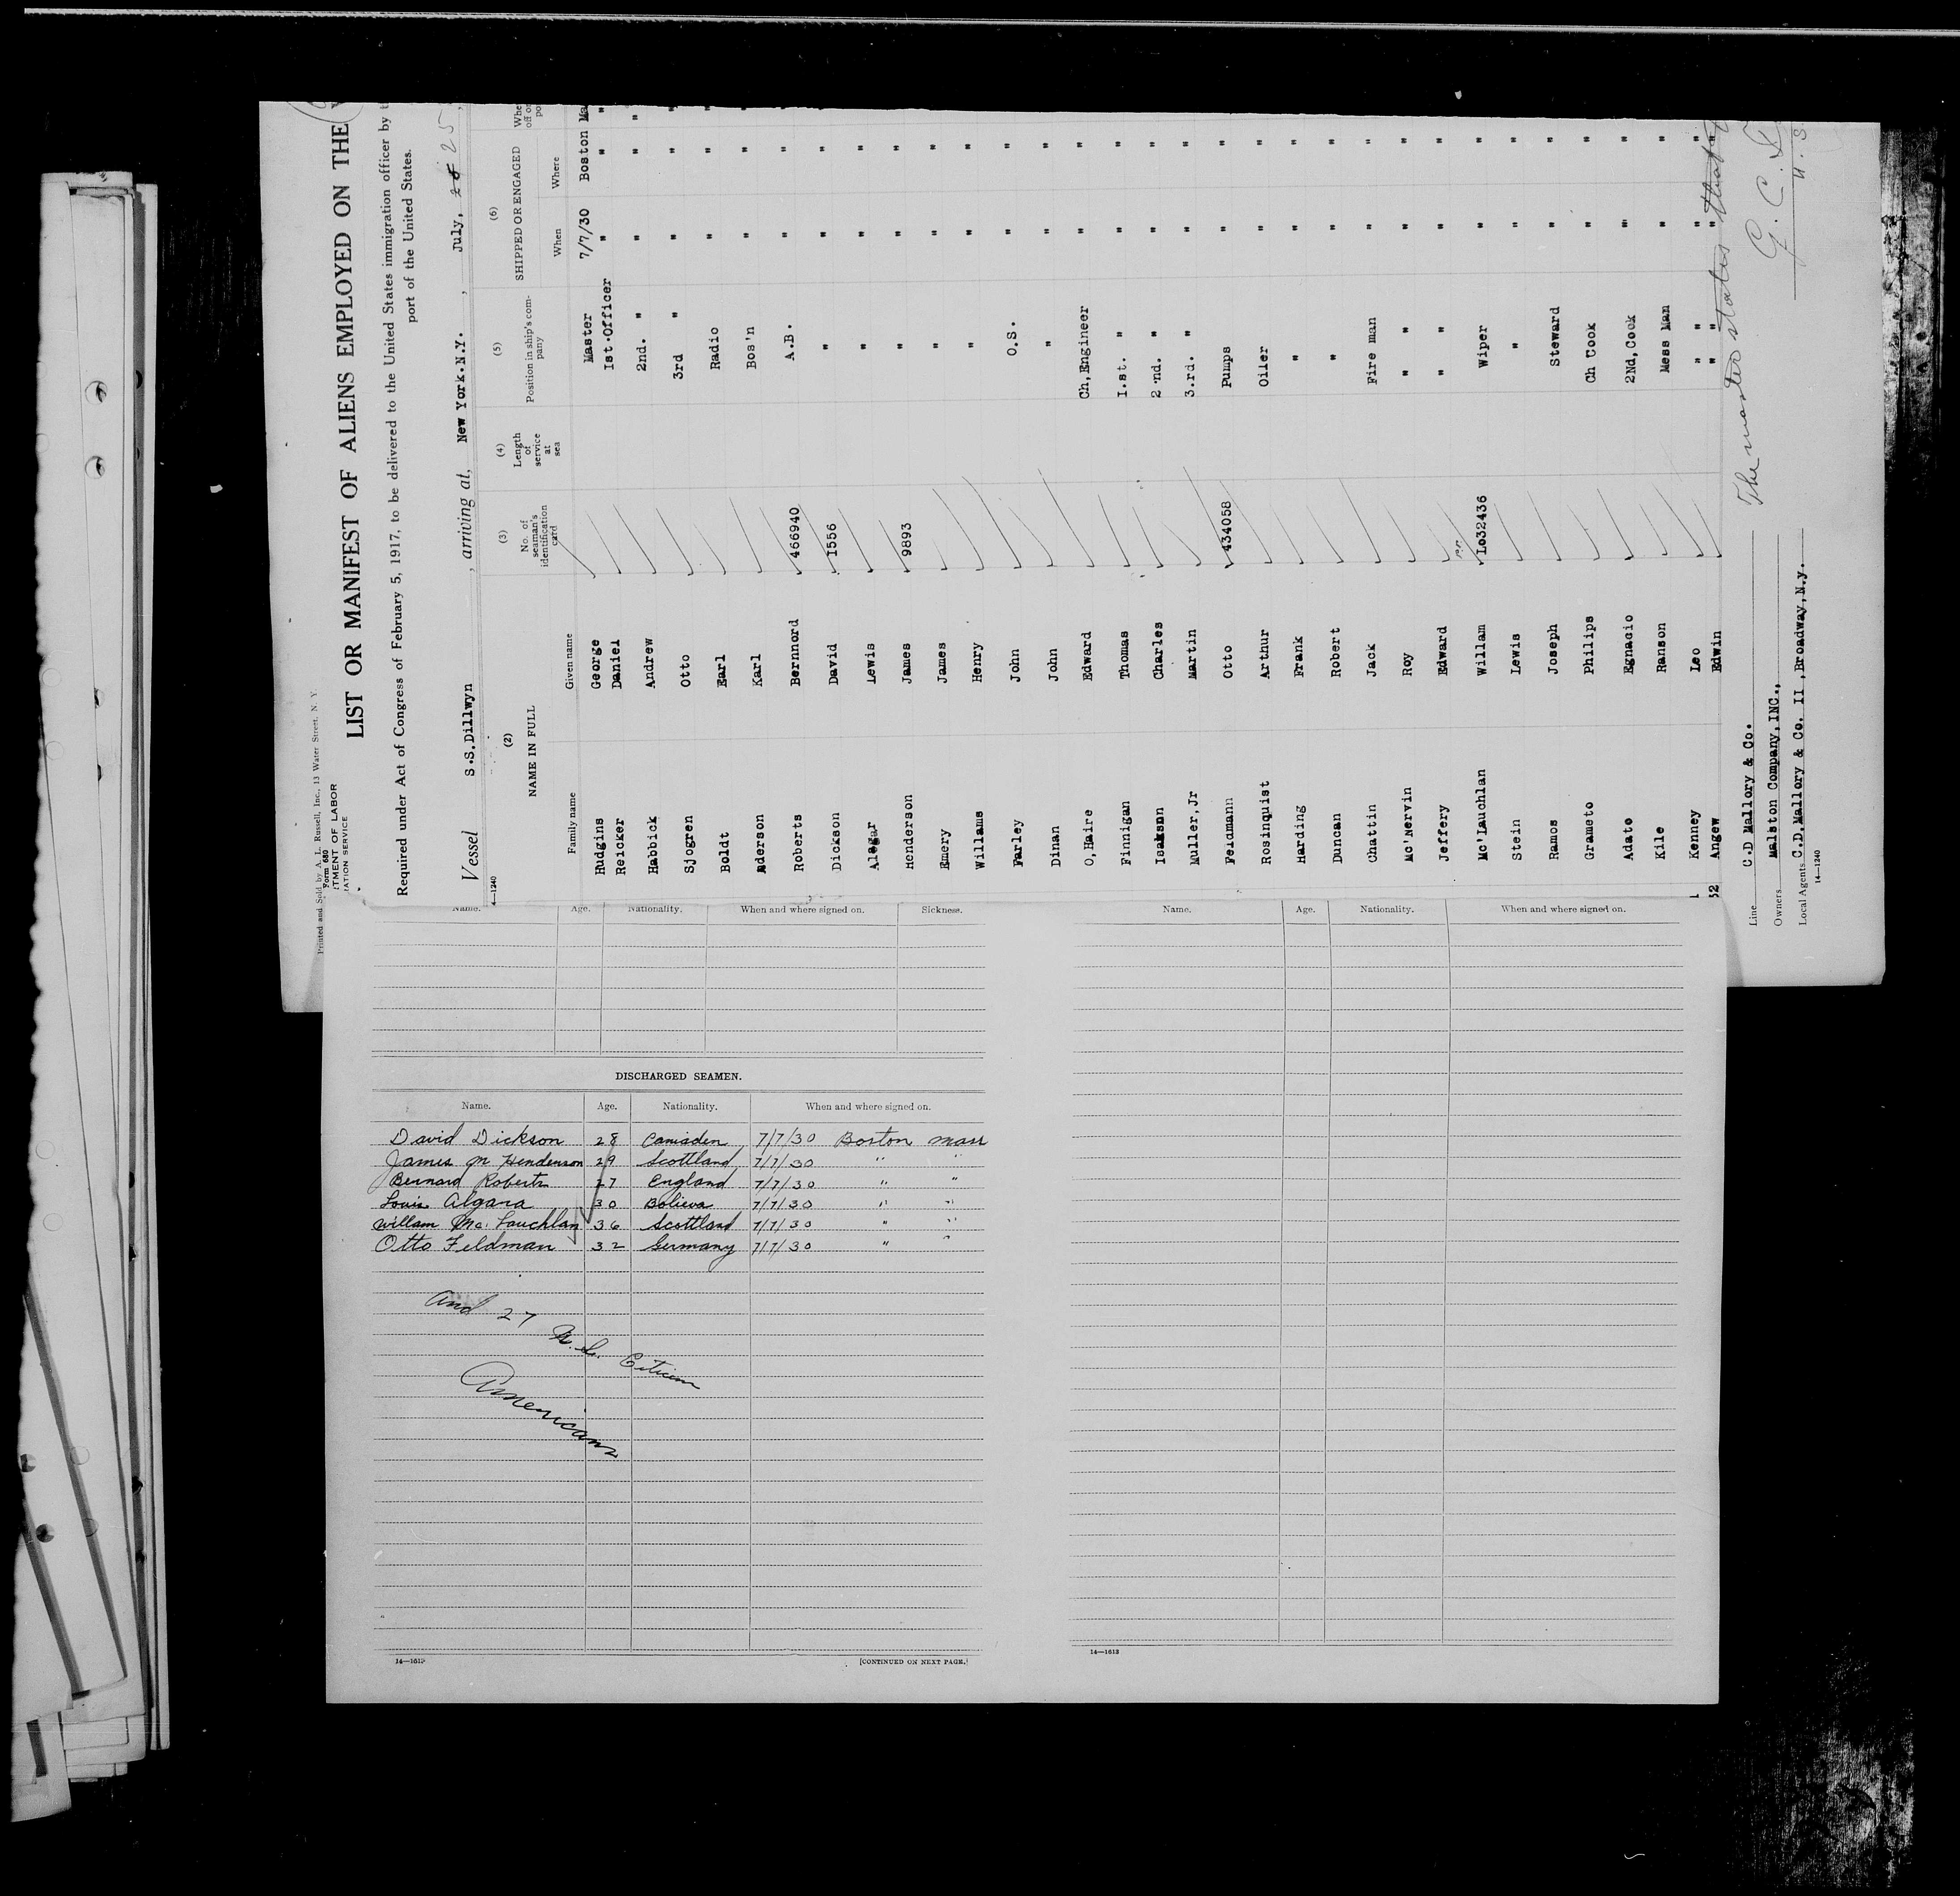 Printed and Sold by A. L. Russell, Inc., 13 Water Street, N. Y.
Form 680
TMENT OF LABOR
ATION SERVICE
LIST OR MANIFEST OF ALIENS EMPLOYED ON THE
Required under Act of Congress of February 5, 1917, to be delivered to the United States immigration officer by t
port of the United States.
Vessel S.S.Dillwyn , arriving at, New York.N.Y. , July, 25 ,
4—1240
(2) (3) (4) (5) (6)
NAME IN FULL No. of seaman's identification card Length of service at sea Position in ship's company SHIPPED OR ENGAGED
Family name Given name When Where
Hudgins George Master 7/7/30 Boston Ma
Reicker Daniel 1st.Officer " " "
Habbick Andrew 2nd. " " " "
Sjogren Otto 3rd " " " "
Boldt Earl Radio " " "
Aderson Karl Bos'n " " "
Roberts Bernnord 466940 A.B. " " "
Dickson David 1556 " " " "
Alegar Lewis " " " "
Henderson James 9893 " " " "
Emery James " " " "
Willams Henry " " " "
Farley John O.S. " " "
Dinan John " " " "
O,Haire Edward Ch,Engineer " " "
Finnigan Thomas I.st. " " " "
Isaksnn Charles 2 nd. " " " "
Muller,Jr Martin 3.rd. " " " "
Feidmann Otto 434058 Pumps " " "
Rosinquist Arthur Oiler " " "
Harding Frank " " " "
Duncan Robert " " " "
Chattin Jack Fire man " " "
Mc'Nervin Roy " " " "
Jeffery Edward " " " "
Mc'Lauchlan Willam Lo32436 Wiper " " "
Stein Lewis " " " "
Ramos Joseph Steward " " "
Grameto Philips Ch Cook " " "
Adato Egnacio 2Nd,Cook " " "
Kile Ranson Mess Man " " "
1 Kenney Leo " " " "
32 Angew Edwin " " " "
The master states that
G. C.
U. S.
Line C.D Mallory & Co.
Owners Malston Company,INC.,
Local Agents C.D.Mallory & Co. II ,Broadway,N.y.
14—1240
Name. Age. Nationality. When and where signed on. Sickness.
DISCHARGED SEAMEN.
Name. Age. Nationality. When and where signed on.
David Dickson 28 Caniaden 7/7/30 Boston Mass
James M Henderson 29 Scottland 7/7/30 " "
Bernard Roberts 27 England 7/7/30 " "
Louis Algara 30 Bolieva 7/7/30 " "
Willam Mc. Lauchlan 36 Scottland 7/7/30 " "
Otto Feldman 32 Germany 7/7/30 " "
And 27 U.S. Citicien
Americans
14—1613
[CONTINUED ON NEXT PAGE.]
Name. Age. Nationality. When and where signed on.
14—1613